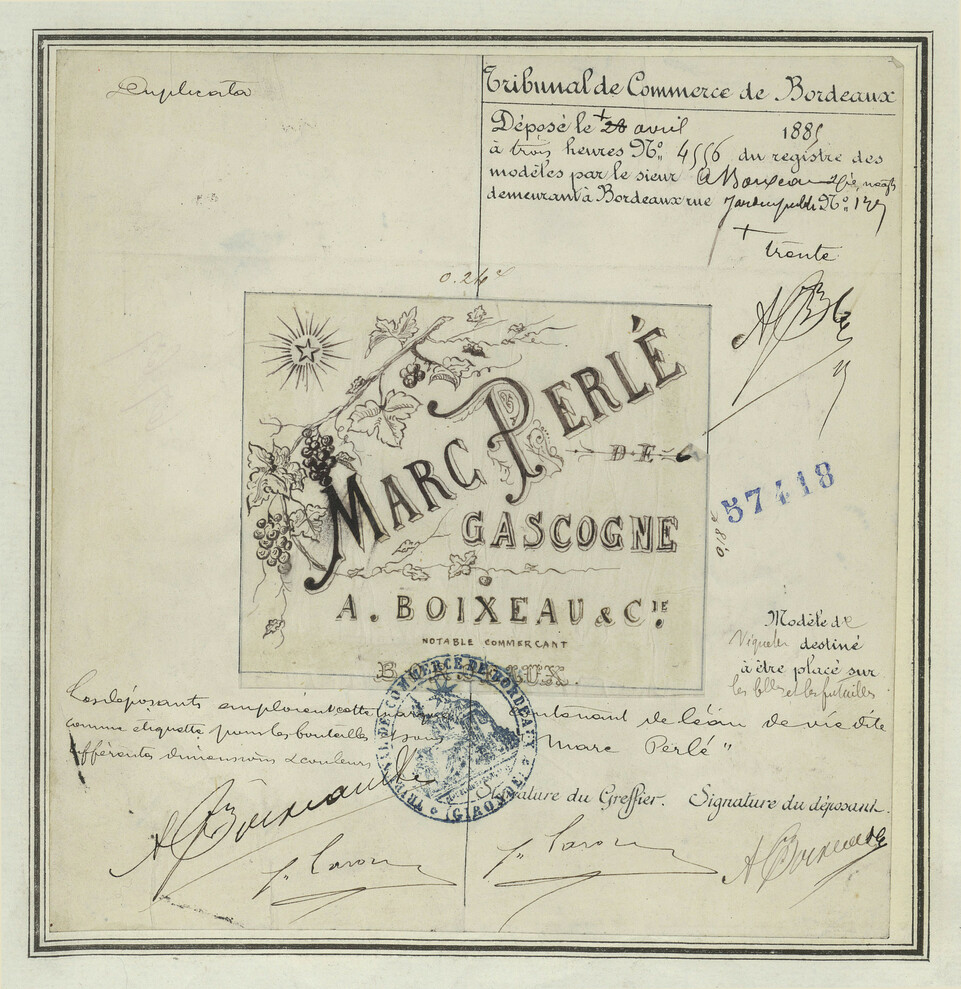 Duplicata
Tribunal de Commerce de Bordeaux
Déposé le 28 avril 1885
à trois heures No. 4556 du registre des
modèles par le sieur A Boixeau & Cie, négts
demeurant à Bordeaux rue Jardin public No. 127
trente
MARC PERLÉ
DE
GASCOGNE
A. BOIXEAU & CIE.
NOTABLE COMMERÇANT
BORDEAUX.
57418
Modèle de
destiné
à être placé sur
les blles et les futailles
Les déposants emploient cette marque contenant de l'eau de vie dite
comme étiquette pour les bouteilles Marc Perlé"
différentes dimensions & couleurs
TRIBUNAL DE COMMERCE DE BORDEAUX
(GIRONDE)
Signature du Greffier. Signature du déposant.
A Boixeau & Cie
A Boixeau & Cie